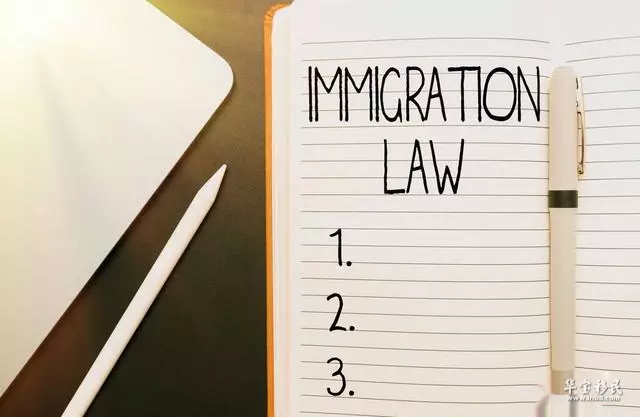 IMMIGRATION
LAW
1.
2.
3.
华宝移民